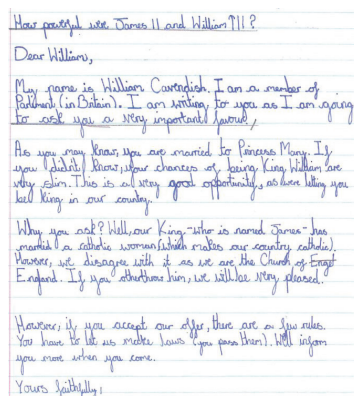 How powerful were James II and William III?
Dear William,
My name is William Cavendish. I am a member of
Parliment (in Britain). I am writing to you as I am going
to ask you a very important favour,
As you may know, you are married to Princess Mary. If
you didn't know, your chances of being King, William are
very slim. This is a very good opportunity, as were letting you
be King in our country.
Why you ask? Well, our King - who is named James - has
married a catholic woman (which makes our country catholic).
However, we disagree with it as we are the Church of Engel
England. If you otherthrow him, we will be very pleased.
However, if you accept our offer, there are a few rules.
You have to let us make laws (you pass them). We'll inform
you more when you come.
Yours faithfully,